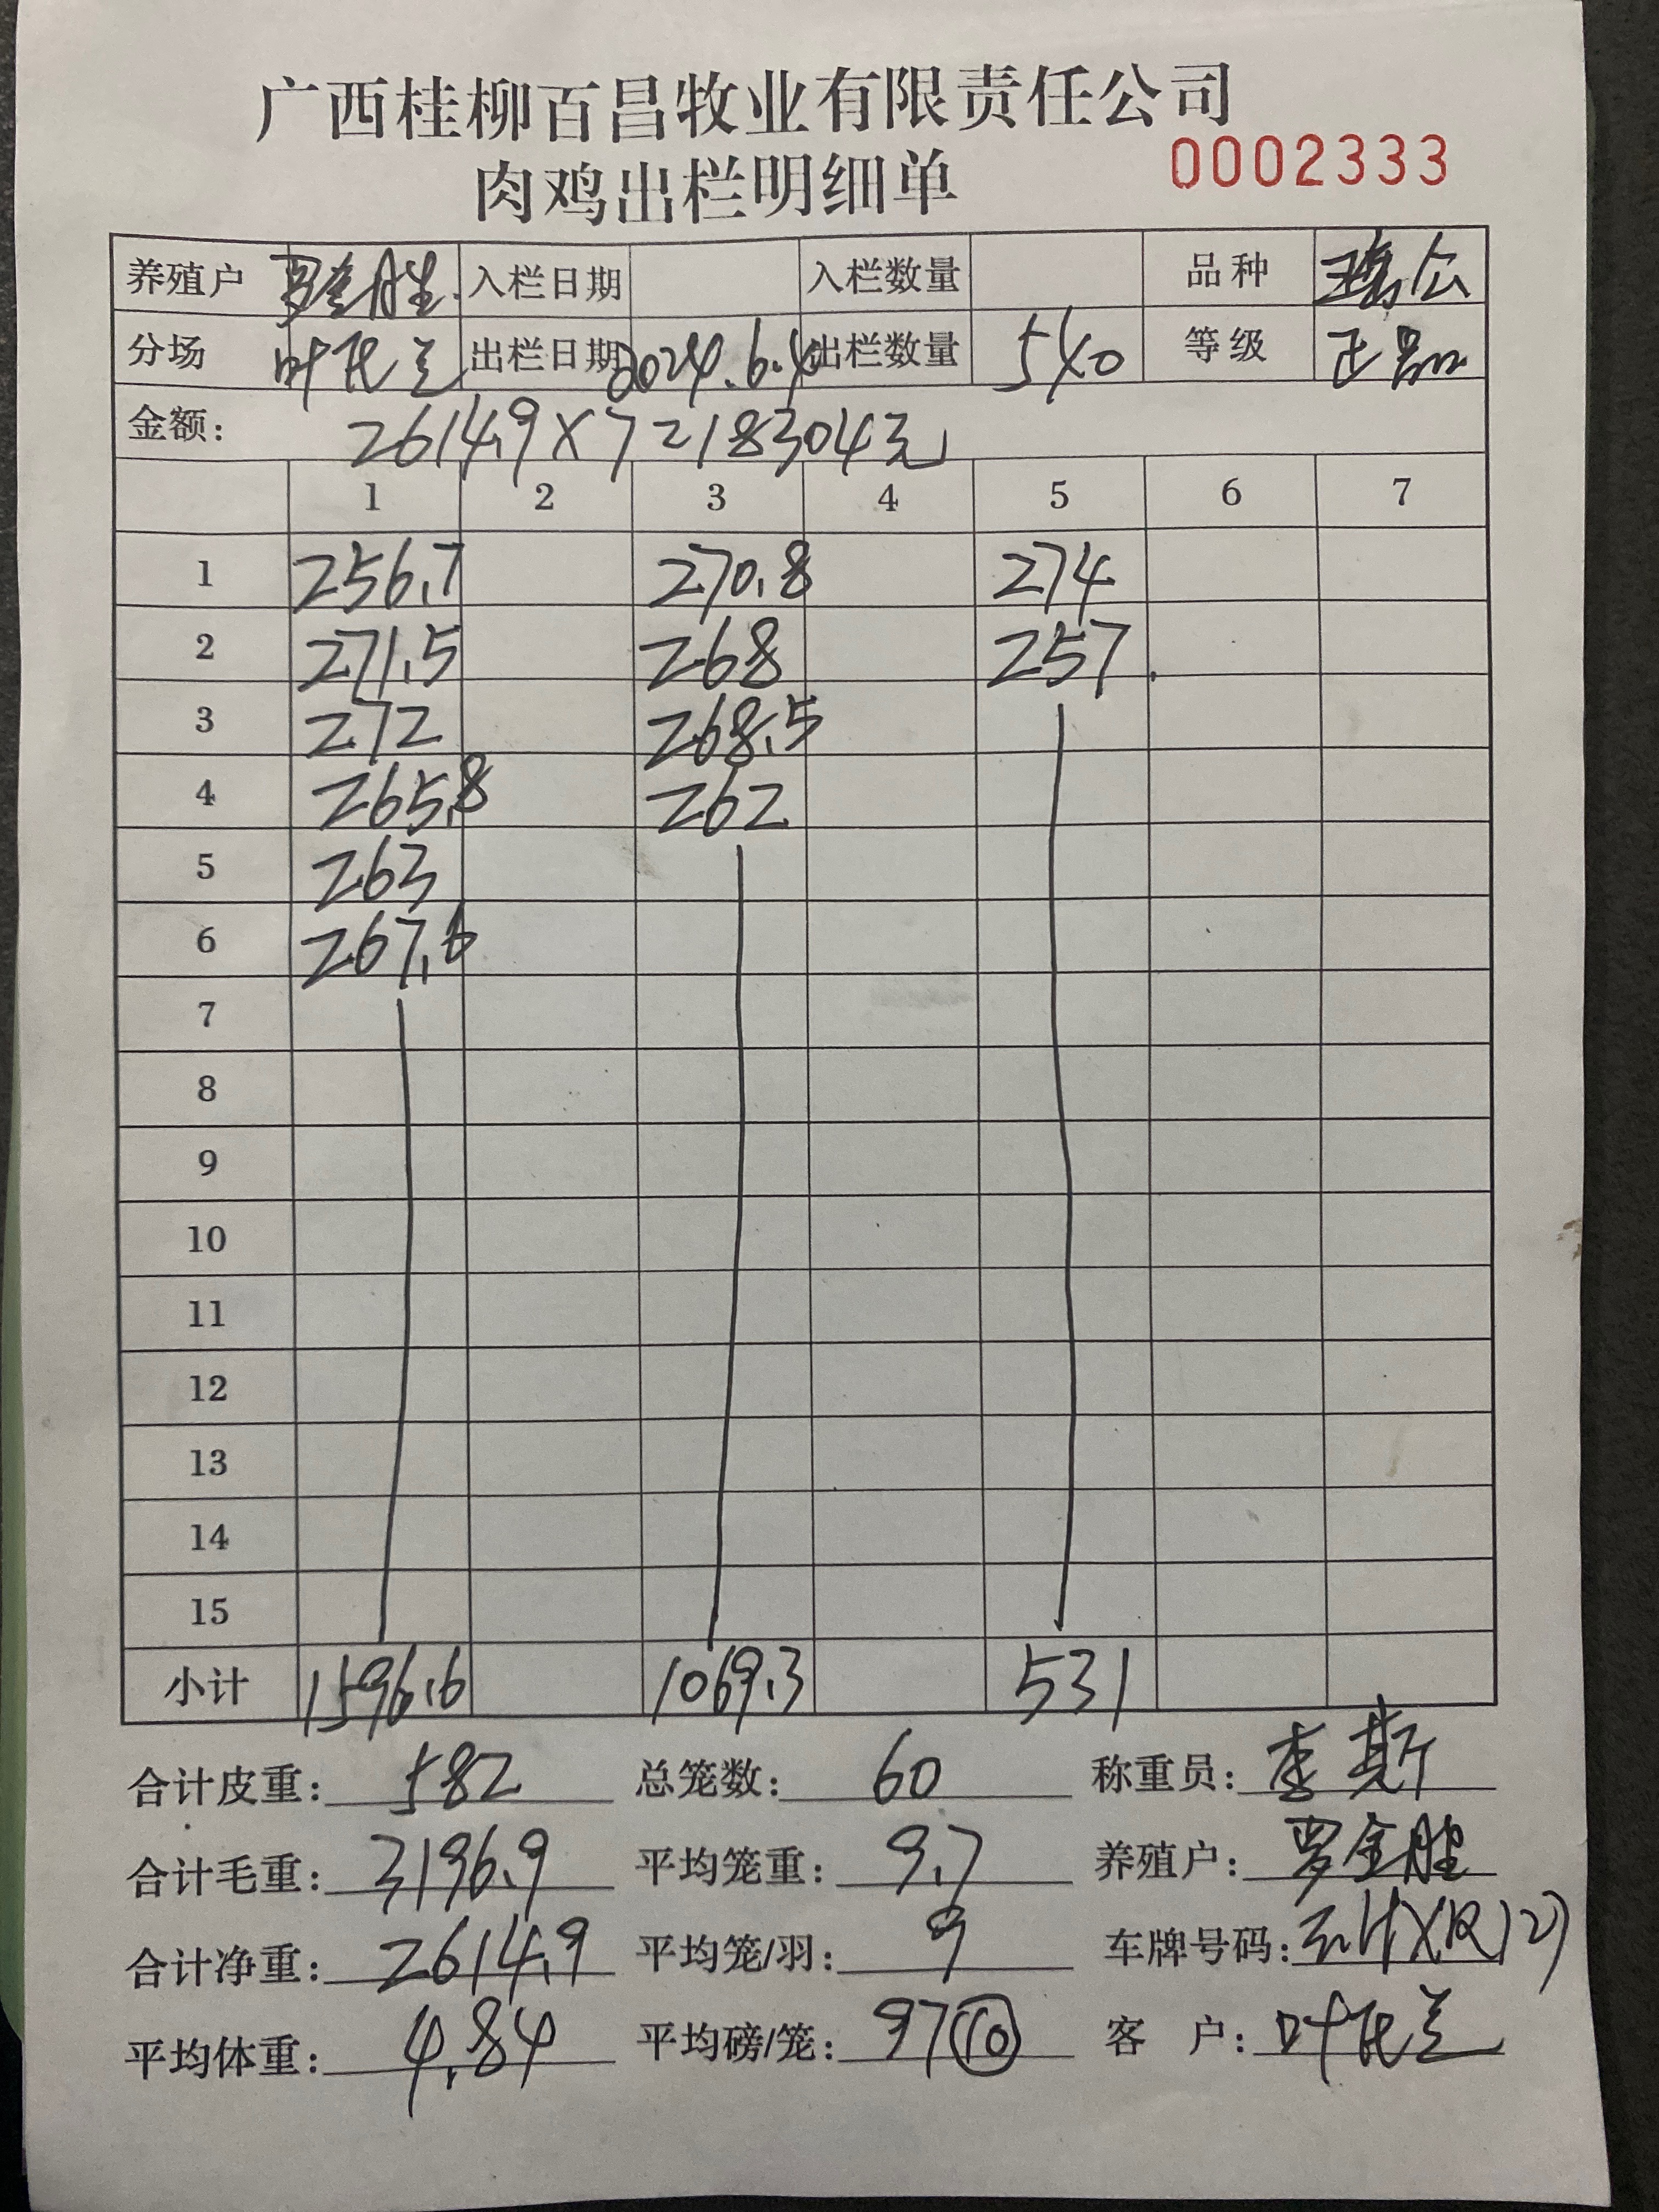 广西桂柳百昌牧业有限责任公司
肉鸡出栏明细单 0002333
养殖户 罗金胜 入栏日期 入栏数量 品种 公
分场 叶 兰 出栏日期 2024.6.4 出栏数量 540 等级 正品
金额: 2614.9×7=18304元
1 2 3 4 5 6 7
1 256.7 270.8 274
2 271.5 268 257
3 272 268.5
4 265.8 262
5 263
6 267.6
7
8
9
10
11
12
13
14
15
小计 1596.6 1069.3 531
合计皮重: 582 总笼数: 60 称重员: 李斯
合计毛重: 3196.9 平均笼重: 9.7 养殖户: 罗金胜
合计净重: 2614.9 平均笼/羽: 9 车牌号码:
平均体重: 4.84 平均磅/笼: 97 10 客 户: 叶 兰